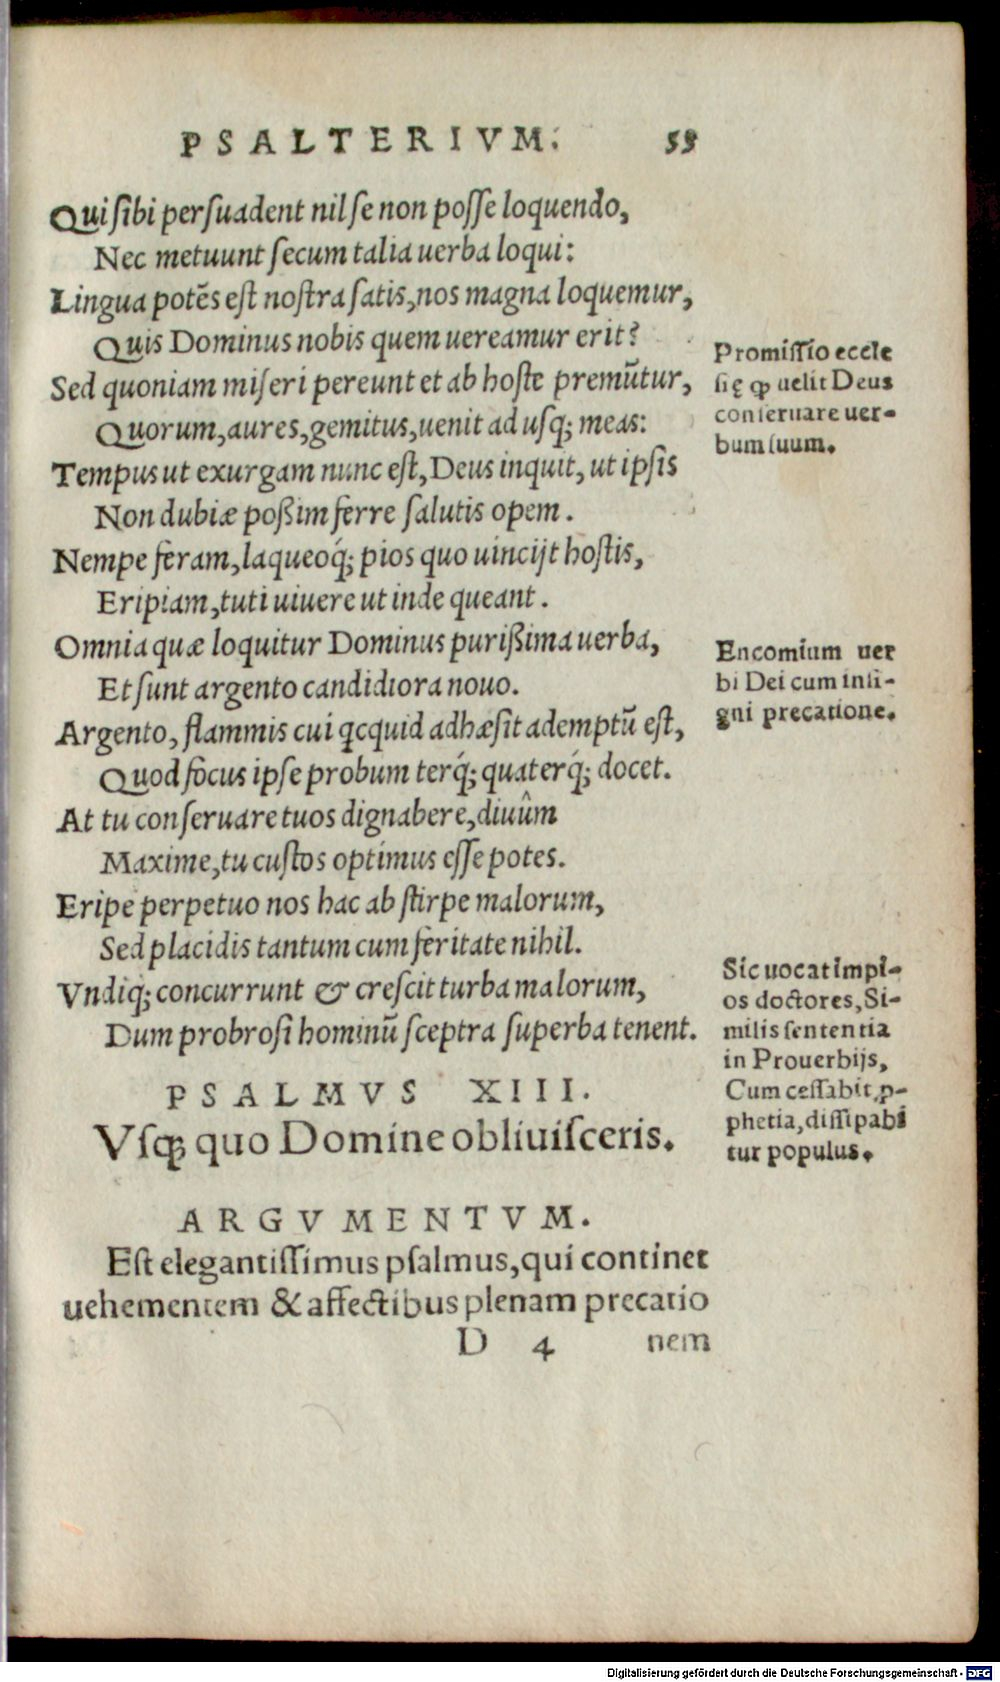 PSALTERIVM. 55
Qui sibi persuadent nil se non posse loquendo,
Nec metuunt secum talia uerba loqui:
Lingua potẽs est nostra satis, nos magna loquemur,
Quis Dominus nobis quem uereamur erit?
Sed quoniam miseri pereunt et ab hoste premũtur,
Quorum, aures, gemitus, uenit ad usq; meas:
Tempus ut exurgam nunc est, Deus inquit, ut ipsis
Non dubiæ poßim ferre salutis opem.
Nempe feram, laqueoq́; pios quo uincijt hostis,
Eripiam, tuti uiuere ut inde queant.
Omnia quæ loquitur Dominus purißima uerba,
Et sunt argento candidiora nouo.
Argento, flammis cui qcquid adhæsit ademptũ est,
Quod focus ipse probum terq́; quaterq́; docet.
At tu conseruare tuos dignabere, diuûm
Maxime, tu custos optimus esse potes.
Eripe perpetuo nos hac ab stirpe malorum,
Sed placidis tantum cum feritate nihil.
Vndiq; concurrunt & crescit turba malorum,
Dum probrosi hominũ sceptra superba tenent.
Promissio eccle
się ꝙ uelit Deus
conseruare uer-
bum suum.
Encomium uer
bi Dei cum insi-
gni precatione.
Sic uocat impi-
os doctores, Si-
milis sententia
in Prouerbijs,
Cum cessabit ꝓ-
phetia, dissipabi
tur populus.
PSALMVS XIII.
Vsq; quo Domine obliuisceris.
ARGVMENTVM.
Est elegantissimus psalmus, qui continet
uehementem & affectibus plenam precatio
D 4 nem
Digitalisierung gefördert durch die Deutsche Forschungsgemeinschaft - DFG